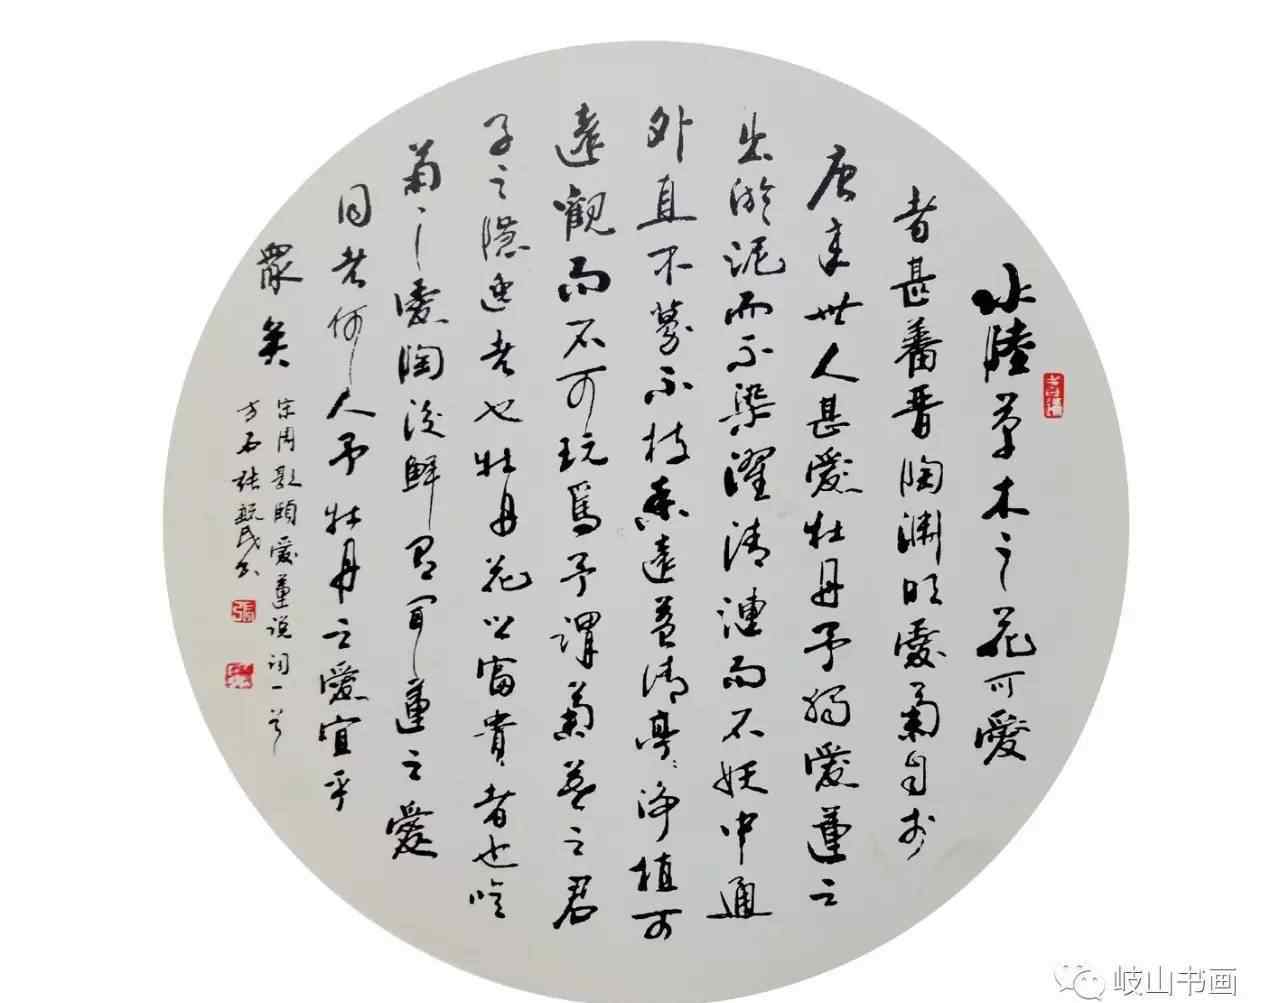 水陸草木之花可愛
者甚蕃晋陶渊明愛菊自李
唐来世人甚愛牡丹予獨愛蓮之
出淤泥而不染濯清漣而不妖中通
外直不蔓不枝香遠益清亭亭净植可
遠觀而不可玩焉予謂菊花之君
子之隱逸者也牡丹花之富貴者也噫
菊之愛陶後鮮有聞蓮之愛
同者何人予牡丹之愛宜乎
眾矣
宋周敦頤愛蓮说词一首
方石张毓民书
岐山书画